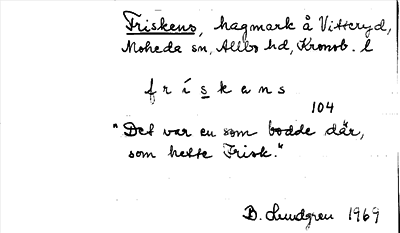 Friskens, hagmark å Vitteryd,
Moheda sn, Allbo hd, Kronob. l
f r í s k e n s
104
"Det var en som bodde där,
som hette Frisk."
B. Lundgren 1969